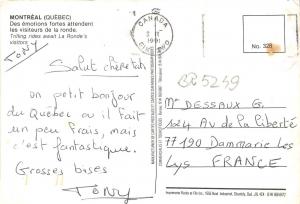 MONTRÉAL (QUÉBEC)
Des émotions fortes attendent
les visiteurs de la ronde.
Trilling rides await La Ronde's
visitors.
Tony
CANADA
No. 328
Salut chère tata
un petit bonjour
du Québec ou il fait
un peu frais, mais
c'est fantastique.
Grosses bises
Tony
CR5249
Mr DESSAUX G.
124 Av de la liberté
77190 Dammarie les
Lys FRANCE